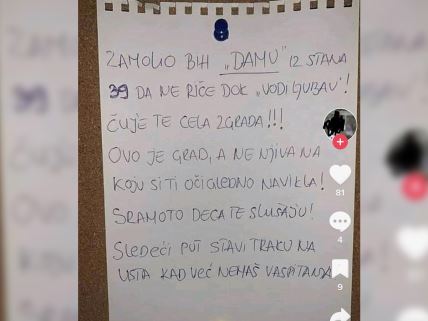 ZAMOLIO BIH „DAMU" IZ STANA
39 DA NE RIČE DOK „VODI LJUBAV"!
ČUJE TE CELA ZGRADA!!!
OVO JE GRAD, A NE NJIVA NA
KOJU SI TI OČIGLEDNO NAVIKLA!
SRAMOTO DECA TE SLUŠAJU!
SLEDEĆI PUT STAVI TRAKU NA
USTA KAD VEĆ NEMAŠ VASPITANJA
81
4
9